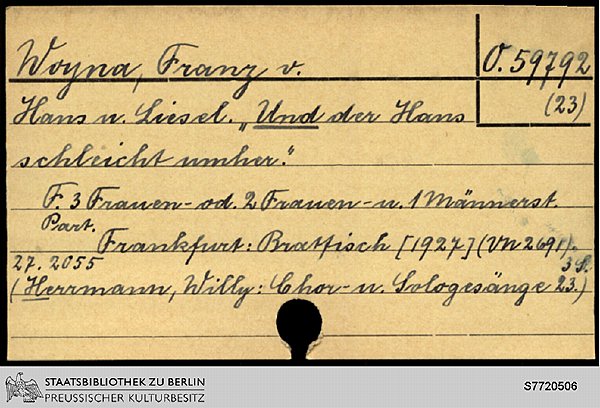 Woyna, Franz v.
O. 59792
(23)
Hans u. Liesel. „Und der Hans
schleicht umher."
F. 3 Frauen- od. 2 Frauen- u. 1 Männerst.
Part.
Frankfurt: Bratfisch [1927] (VN 2691).
27. 2055
3 S.
(Herrmann, Willy: Chor- u. Sologesänge 23.)
STAATSBIBLIOTHEK ZU BERLIN
PREUSSISCHER KULTURBESITZ
S7720506